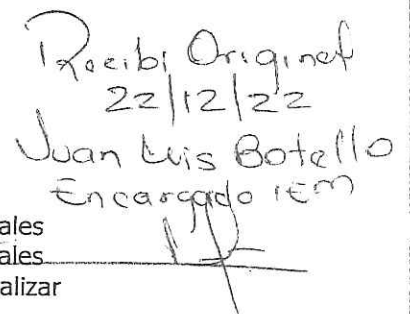 Recibi Original
22/12/22
Juan Luis Botello
Encargado IEM
ales
ales
alizar